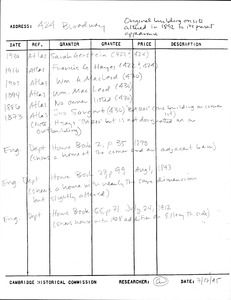 ADDRESS: 424 Broadway
Original building on site
altered in 1892 to its present
appearance
DATE REF. GRANTOR GRANTEE PRICE DESCRIPTION
1930 Atlas Sarah (422-424)
1916 Atlas Francis G. (422, 424)
1903 Atlas Wm. A. MacLeod (430)
1894 Atlas Wm. MacLeod (430)
1886 Atlas No owner listed (430)
1873 Atlas Geo (430) (one building on corner
lot)
(Note: but is not designated as an
outbuilding)
Eng. Dept House Book 2, p 35 1890
(shows a home at the corner and an adjacent barn)
Eng. Dept House Book 27, p 99 Aug 1, 1893
(shows a home with nearly the same dimensions
but slightly altered)
Eng. Dept House Book 65, p 21 July 24, 1912
(same home with addition on Ellery St side)
CAMBRIDGE HISTORICAL COMMISSION RESEARCHER: DATE: